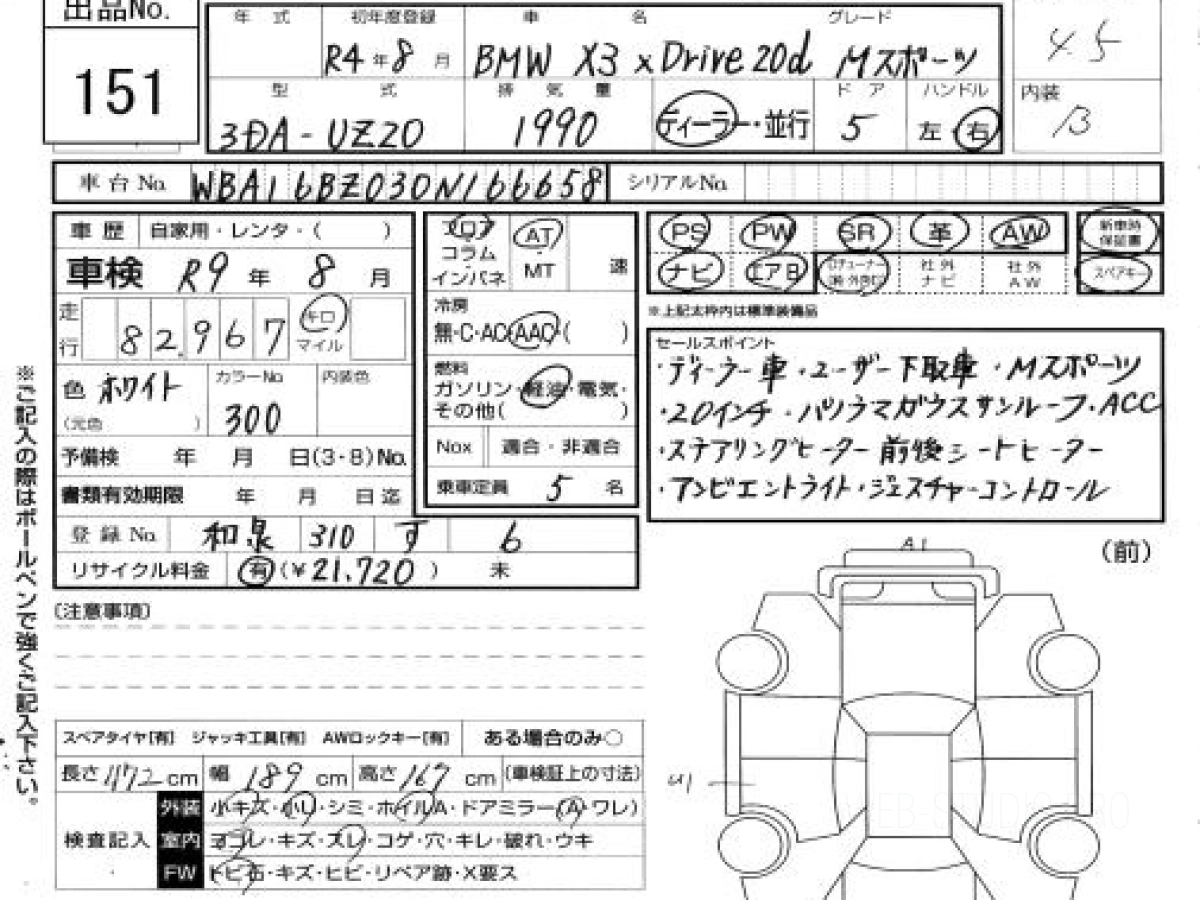 出品No.
151
年 式 初年度登録 車 名 グレード
R4年8月 BMW X3 xDrive20d Mスポーツ
4.5
型 式 排 気 量 ドア ハンドル 内装
3DA-UZ20 1990 ディーラー・並行 5 左・右 B
車台No. WBA16BZ030N166658 シリアルNo.
車歴 自家用・レンタ・( )
車検 R9年 8月
走行 82,967 キロ マイル
色 ホワイト カラーNo. 300 内装色
(元色 )
予備検 年 月 日(3・8)No.
書類有効期限 年 月 日迄
登録No. 和泉 310 す 6
リサイクル料金 有(¥21,720) 未
フロア コラム インパネ AT MT 速
冷房
無・C・AC・AAC・( )
燃料
ガソリン・軽油・電気・
その他( )
Nox 適合・非適合
乗車定員 5 名
PS PW SR 革 AW 新車時保証書
ナビ エアB 社外ナビ 社外AW スペアキー
※上記太枠内は標準装備品
セールスポイント
・ディーラー車・ユーザー下取車・Mスポーツ
・20インチ・パノラマガラスサンルーフ・ACC
・ステアリングヒーター 前後シートヒーター
・アンビエントライト・ジェスチャーコントロール
(注意事項)
※ご記入の際はボールペンで強くご記入下さい。
スペアタイヤ[有] ジャッキ工具[有] AWロックキー[有] ある場合のみ○
長さ472cm 幅189cm 高さ167cm (車検証上の寸法)
検査記入
外装 小キズ・小U・シミ・ホイルA・ドアミラー(A・ワレ)
室内 ヨゴレ・キズ・スレ・コゲ・穴・キレ・破れ・ウキ
FW トビ石・キズ・ヒビ・リペア跡・X要ス
A1
(前)
U1